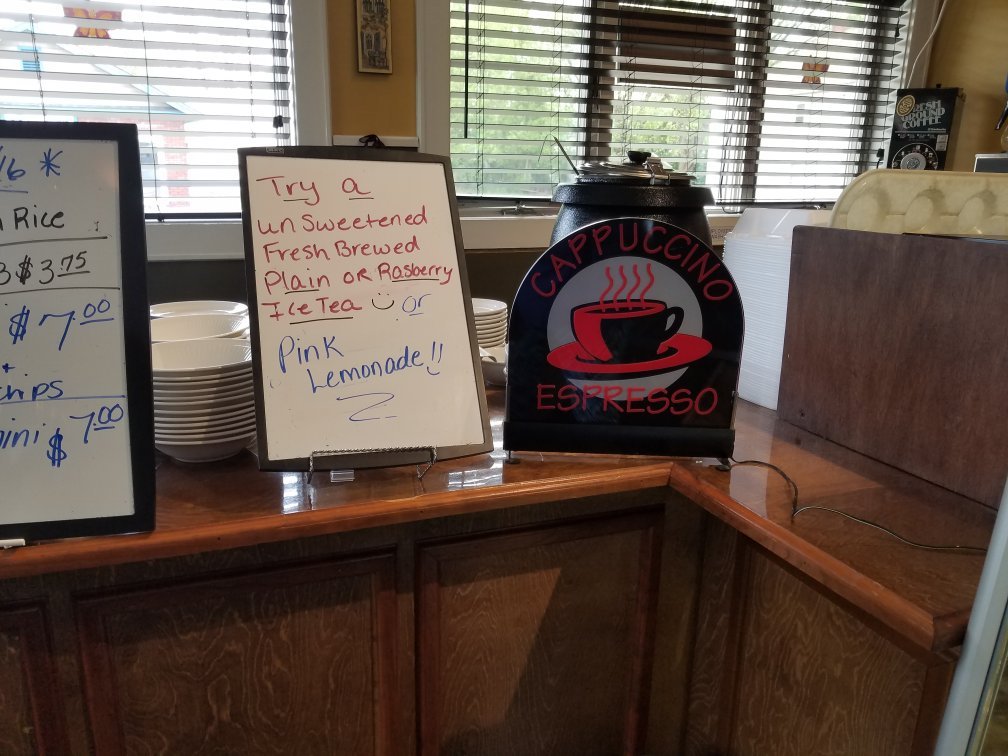 /16 *
Rice
3 $3.75
$7.00
+
chips
ini $7.00
Try a
unSweetened
Fresh Brewed
Plain or Rasberry
Ice Tea or
Pink
Lemonade!!
CAPPUCCINO
ESPRESSO
FRESH
GROUND
COFFEE